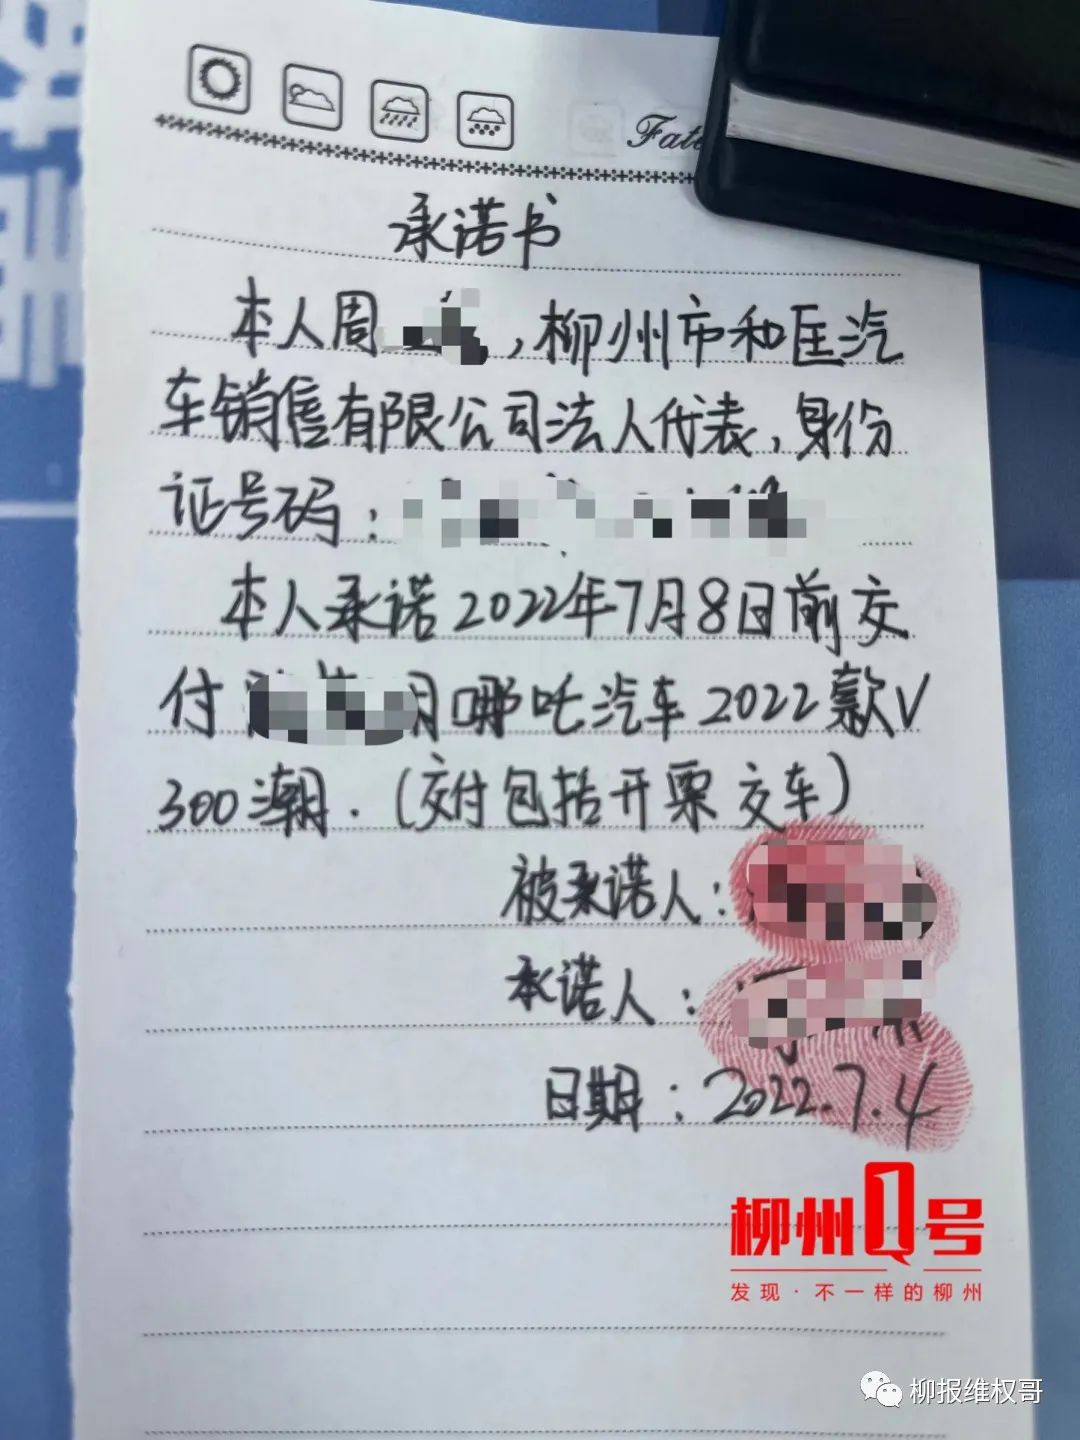 Fate
承诺书
本人周 ，柳州市和匡汽
车销售有限公司法人代表，身份
证号码：
本人承诺2022年7月8日前交
付 哪吒汽车2022款V
300潮.（交付包括开票交车）
被承诺人：
承诺人：
日期：2022.7.4
柳州Q号
发现·不一样的柳州
柳报维权哥